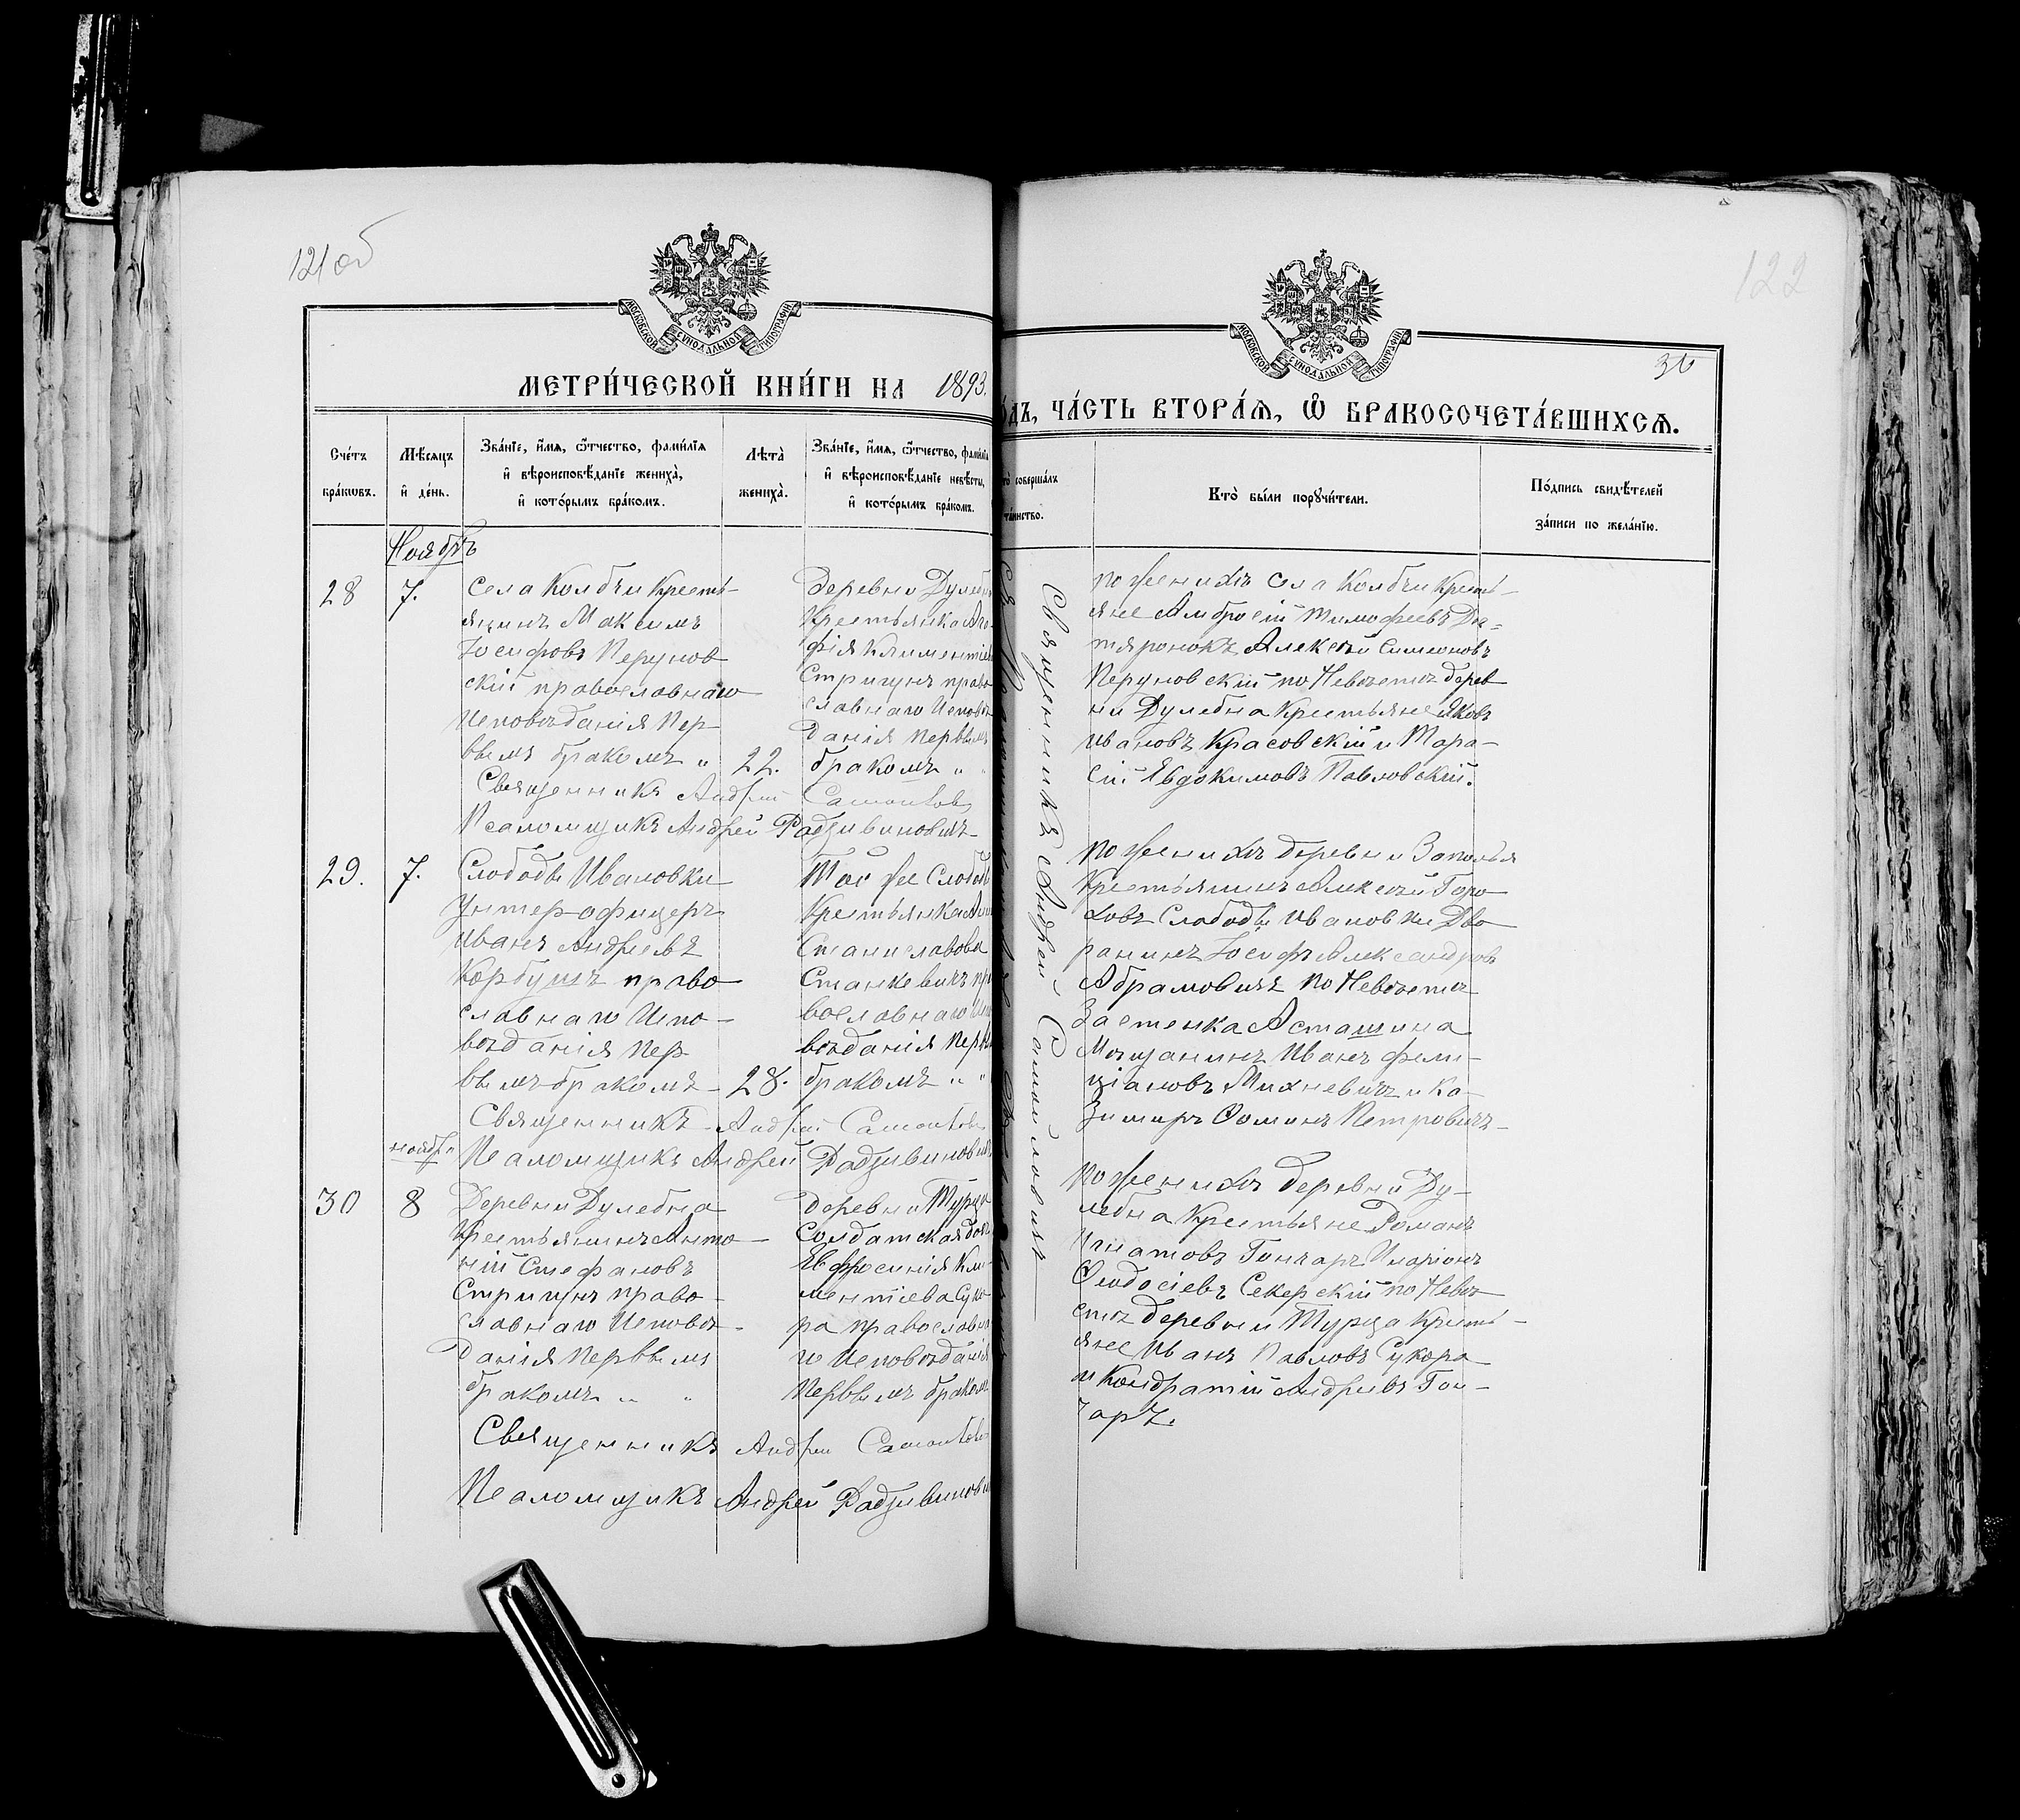 121об
122
МОСКОВСКОЙ СѴНОДАЛЬНОЙ ТИПОГРАФІИ
МОСКОВСКОЙ СѴНОДАЛЬНОЙ ТИПОГРАФІИ
30
МЕТРИ́ЧЕСКОЙ КНИ́ГИ НА 1893.
ЧА́СТЬ ВТОРА́Ѧ, Ѽ БРАКОСОЧЕТА́ВШИХСѦ.
Сче́тъ бра́кѡвъ.
Мѣ́сяцъ и҆ де́нь.
Зва́нїе, и҆́мѧ, ѻ҆́тчество, фами́лїѧ
и҆ вѣроисповѣ́данїе жениха̀,
и҆ кото́рымъ бра́комъ.
Лѣта̀ жениха̀.
Зва́нїе, и҆́мѧ, ѻ҆́тчество, фами́лїѧ
и҆ вѣроисповѣ́данїе невѣ́сты,
и҆ кото́рымъ бра́комъ.
совершáлъ
та́инство.
Кто̀ бы́ли порꙋчи́тели.
По́дпись свидѣ́телей
за́писи по жела́нїю.
Ноябрь
28 7.
Села Колбчи Кресть-
янинъ Максимъ
Іосифовъ Перунов
скій православнаго
Исповѣданія Пер-
вымъ бракомъ „ 22.
Деревни Дулебн
Крестьянка Ага-
фія Климентіев
Стригунъ право
славнаго Исповѣ
данія Первымъ
бракомъ „ „
Священникъ Андрей Самойлов
Псаломщикъ Андрей Радзивиновичъ
по Женихѣ Села Колбчи Кресть-
яне Амбросій Тимофеевъ Де-
тяронокъ Алексѣй Симеоновъ
Перуновскій по Невѣстѣ дерев
ни Дулебна Крестьяне Яковъ
Ивановъ Красовскій и Тара-
сій Евдокимовъ Павловскій.
29. 7.
Слободы Ивановки
Унтер-офицеръ
Иванъ Андреевъ
Корбутъ право
славнаго Испо-
вѣданія Пер
вымъ бракомъ - 28.
Той же Слободы
Крестьянка
Станиславова
Станкевичъ пра
вославнаго Исп
вѣданія Перв
бракомъ „ „
Священникъ Андрей Самойлов
Псаломщикъ Андрей Радзивинович
по Женихѣ деревни Заполья
Крестьянинъ Алексѣй Горо
ховъ Слободы Ивановки Дво
рянинъ Іосифъ Александровъ
Абрамовичъ по Невѣстѣ
Застенка Асташина
Мѣщанинъ Иванъ Фели-
ціановъ Михневичъ и Ка-
зимиръ Ѳоминъ Петровичъ -
ноябрь
30 8
Деревни Дулебна
Крестьянинъ Анто-
ній Стефановъ
Стригунъ право-
славнаго Исповѣ-
данія Первымъ
бракомъ „ „
деревни Турца
Солдатская доч
Евфросинія Кли
ментіева Суко
ра православна
го Исповѣданія
Первымъ бракомъ
Священникъ Андрей Самойлов
Псаломщикъ Андрей Радзивинови
по Женихѣ деревни Ду-
лебна Крестьяне Романъ
Игнатовъ Гончаръ Иларіонъ
Ѳеодосіевъ Секерскій по Невѣ
стѣ деревни Турца Кресть-
яне Иванъ Павловъ Сукора
и Кондратій Андреевъ Гон-
чаръ.
Священникъ Андрей Самойловичъ